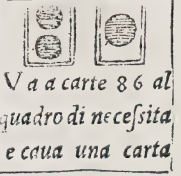 V a a carte 86 al
quadro di neceſsita
e caua una carta